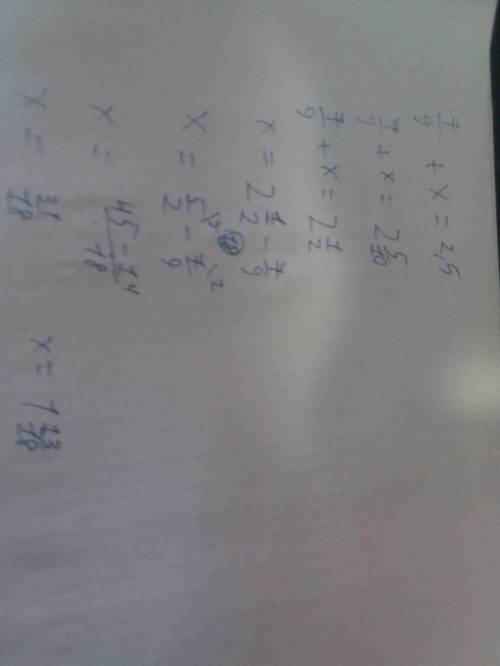 7/9 + x = 2,5
7/9 + x = 2 5/10
7/9 + x = 2 1/2
x = 2 1/2 - 7/9
x = 5/2 \9 - 7/9 \2
x = 45 - 14 / 18
x = 31/18
x = 1 13/18